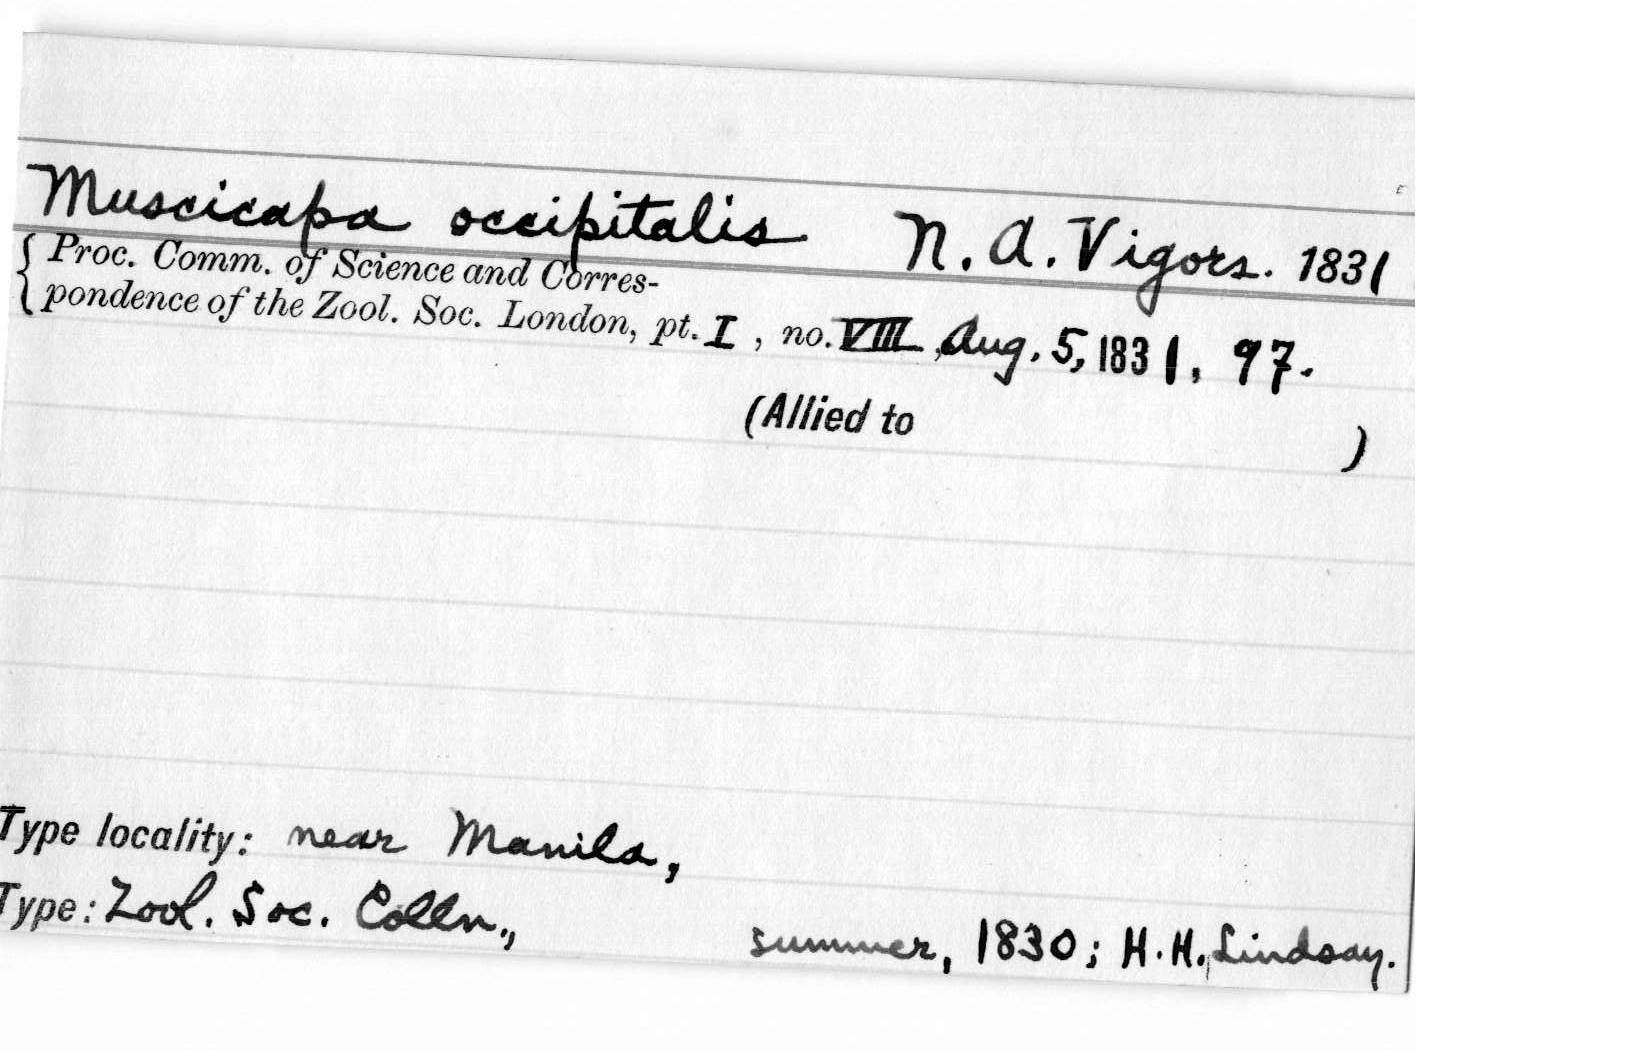 Muscicapa occipitalis N. A. Vigors. 1831
Proc. Comm. of Science and Corres-
pondence of the Zool. Soc. London, pt. I, no. VIII, Aug. 5, 1831, 97.
(Allied to )
Type locality: near Manila,
Type: Zool. Soc. Colln., summer, 1830; H. H. Lindsay.